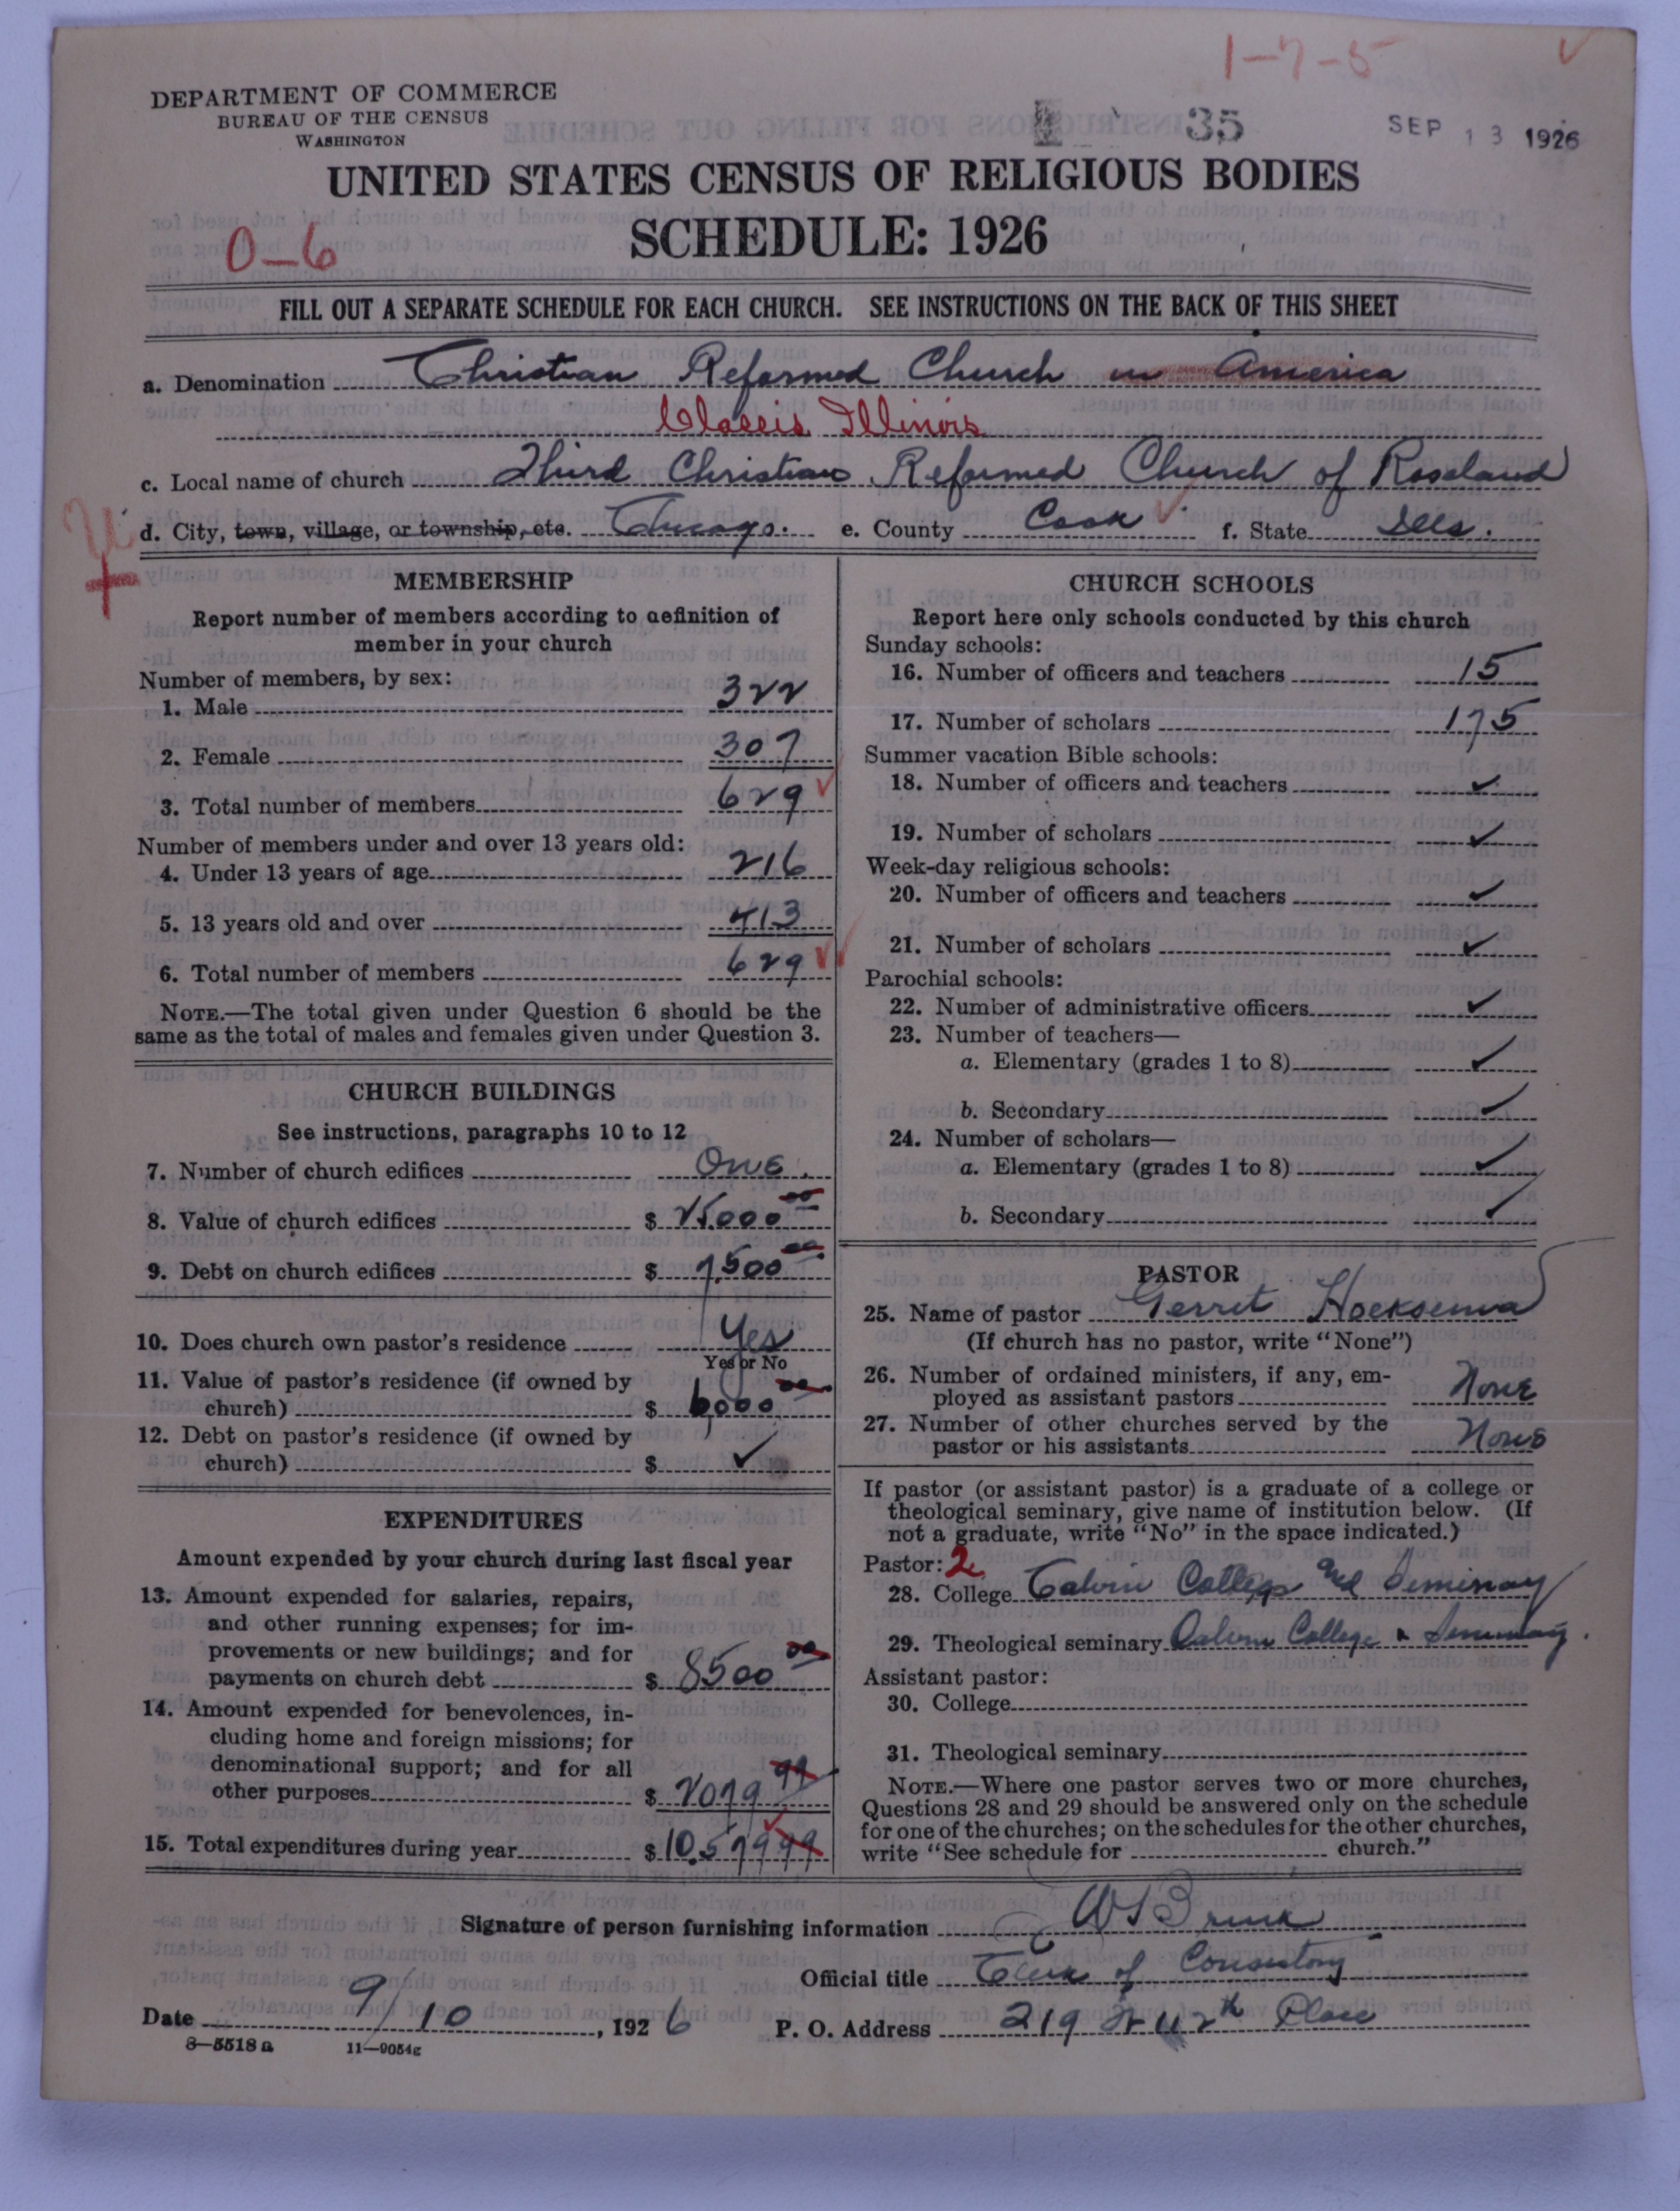 1-7-5
DEPARTMENT OF COMMERCE
BUREAU OF THE CENSUS
WASHINGTON
35
SEP 13 1926
UNITED STATES CENSUS OF RELIGIOUS BODIES
SCHEDULE: 1926
0-6
FILL OUT A SEPARATE SCHEDULE FOR EACH CHURCH. SEE INSTRUCTIONS ON THE BACK OF THIS SHEET
a. Denomination Christian Reformed Church in America
Classis Illinois
c. Local name of church Third Christian Reformed Church of Roseland
d. City, town, village, or township, etc. Chicago. e. County Cook f. State Ills.
MEMBERSHIP
Report number of members according to definition of
member in your church
Number of members, by sex:
1. Male 322
2. Female 307
3. Total number of members 629
Number of members under and over 13 years old:
4. Under 13 years of age 216
5. 13 years old and over 413
6. Total number of members 629
NOTE.—The total given under Question 6 should be the
same as the total of males and females given under Question 3.
CHURCH BUILDINGS
See instructions, paragraphs 10 to 12
7. Number of church edifices One.
8. Value of church edifices $ 25000 00
9. Debt on church edifices $ 7500 00
10. Does church own pastor's residence Yes
Yes or No
11. Value of pastor's residence (if owned by
church) $ 6000 00
12. Debt on pastor's residence (if owned by
church) $ ✓
EXPENDITURES
Amount expended by your church during last fiscal year
13. Amount expended for salaries, repairs,
and other running expenses; for im-
provements or new buildings; and for
payments on church debt $ 8500 00
14. Amount expended for benevolences, in-
cluding home and foreign missions; for
denominational support; and for all
other purposes $ 2079 99
15. Total expenditures during year $ 10.579 99
CHURCH SCHOOLS
Report here only schools conducted by this church
Sunday schools:
16. Number of officers and teachers 15
17. Number of scholars 175
Summer vacation Bible schools:
18. Number of officers and teachers ✓
19. Number of scholars ✓
Week-day religious schools:
20. Number of officers and teachers ✓
21. Number of scholars ✓
Parochial schools:
22. Number of administrative officers ✓
23. Number of teachers—
a. Elementary (grades 1 to 8) ✓
b. Secondary ✓
24. Number of scholars—
a. Elementary (grades 1 to 8) ✓
b. Secondary ✓
PASTOR
25. Name of pastor Gerrit Hoeksema
(If church has no pastor, write "None")
26. Number of ordained ministers, if any, em-
ployed as assistant pastors None
27. Number of other churches served by the
pastor or his assistants None
If pastor (or assistant pastor) is a graduate of a college or
theological seminary, give name of institution below. (If
not a graduate, write "No" in the space indicated.)
Pastor: 2
28. College Calvin College and Seminary
29. Theological seminary Calvin College & Seminary.
Assistant pastor:
30. College
31. Theological seminary
NOTE.—Where one pastor serves two or more churches,
Questions 28 and 29 should be answered only on the schedule
for one of the churches; on the schedules for the other churches,
write "See schedule for church."
Signature of person furnishing information
Official title Clerk of Consistory
Date 9/10, 1926 P. O. Address 219 W 112th Place
8—5518a 11—9054g